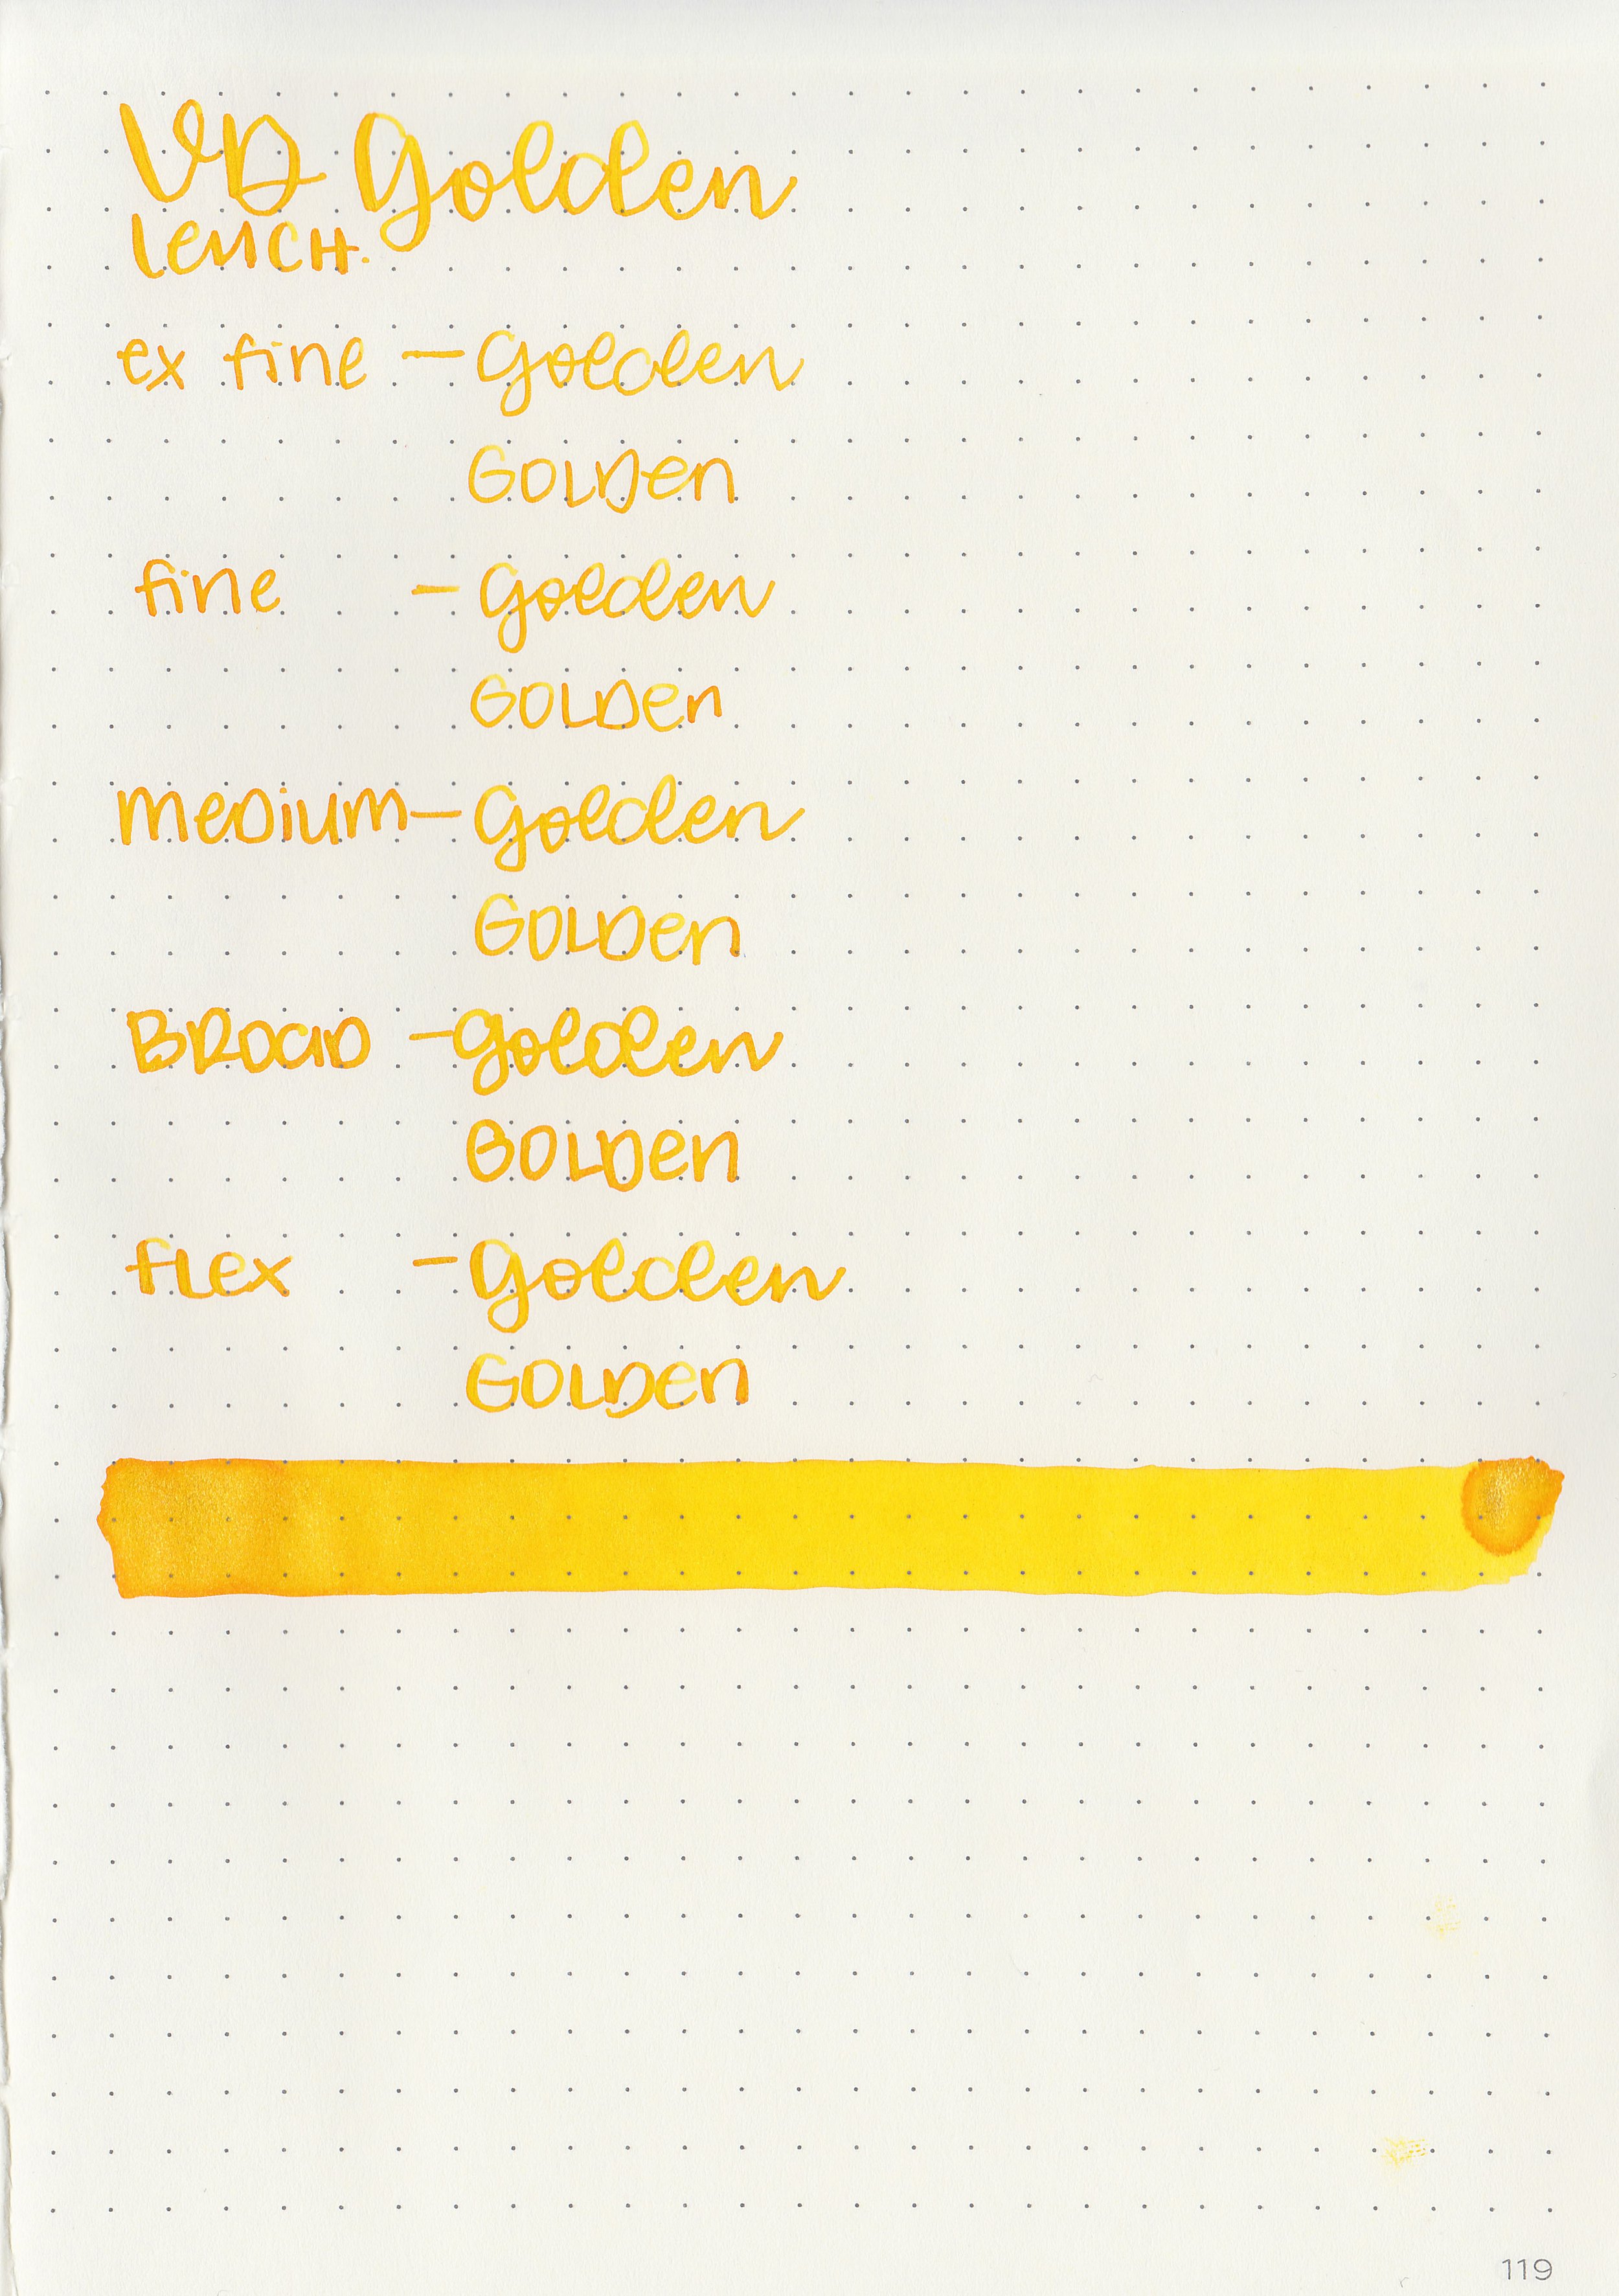 VD Golden
LeuCH.
ex fine - Golden
GOLDen
fine - Golden
GOLDen
meDium - Golden
GOLDen
BROaD - Golden
GOLDen
fLex - Golden
GOLDen
119